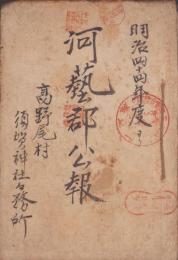 明治四十四年度ヨリ
河藝郡公報
高野尾村
須賀神社々務所